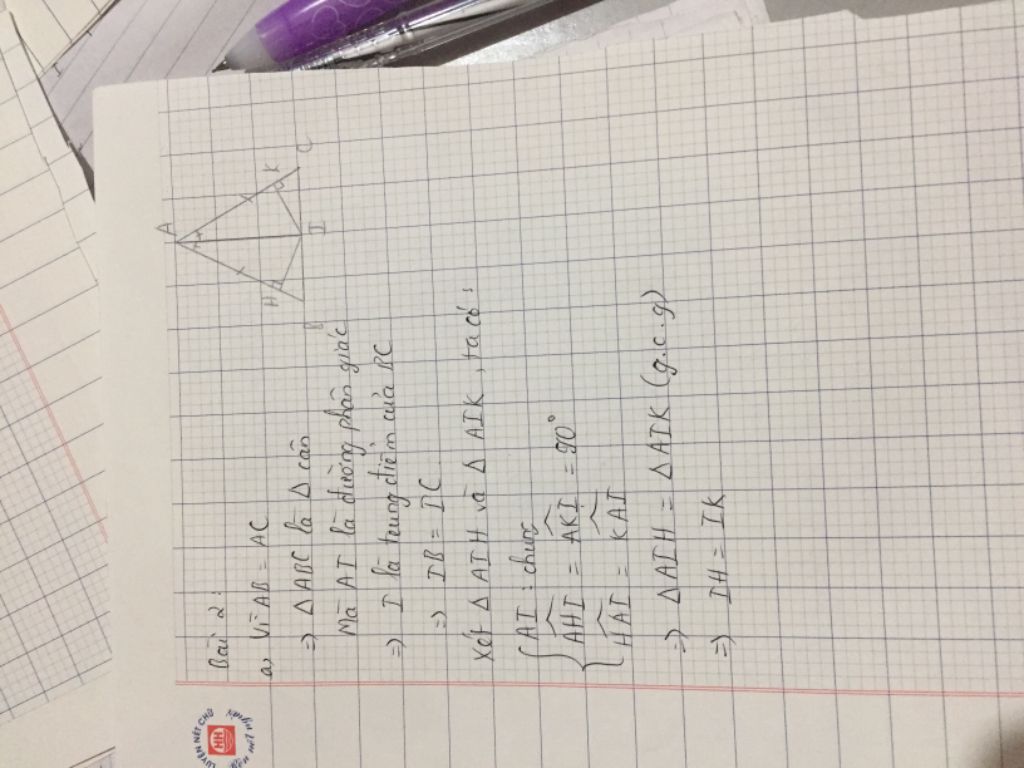 Bài 2:
A
H
K
B
I
C
a) Vì AB = AC
=> ΔABC là Δ cân
Mà AI là đường phân giác
=> I là trung điểm của BC
=> IB = IC
Xét Δ AIH và Δ AIK, ta có:
AI: chung
AHI = AKI = 90°
HAI = KAI
=> ΔAIH = ΔAIK (g.c.g)
=> IH = IK
LUYỆN NÉT CHỮ
HH